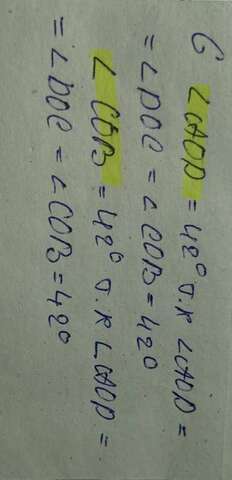 6 ∠AOD = 42° т.к ∠AOD =
= ∠DOC = ∠COB = 42°
∠COB = 42° т.к ∠AOD =
= ∠DOC = ∠COB = 42°